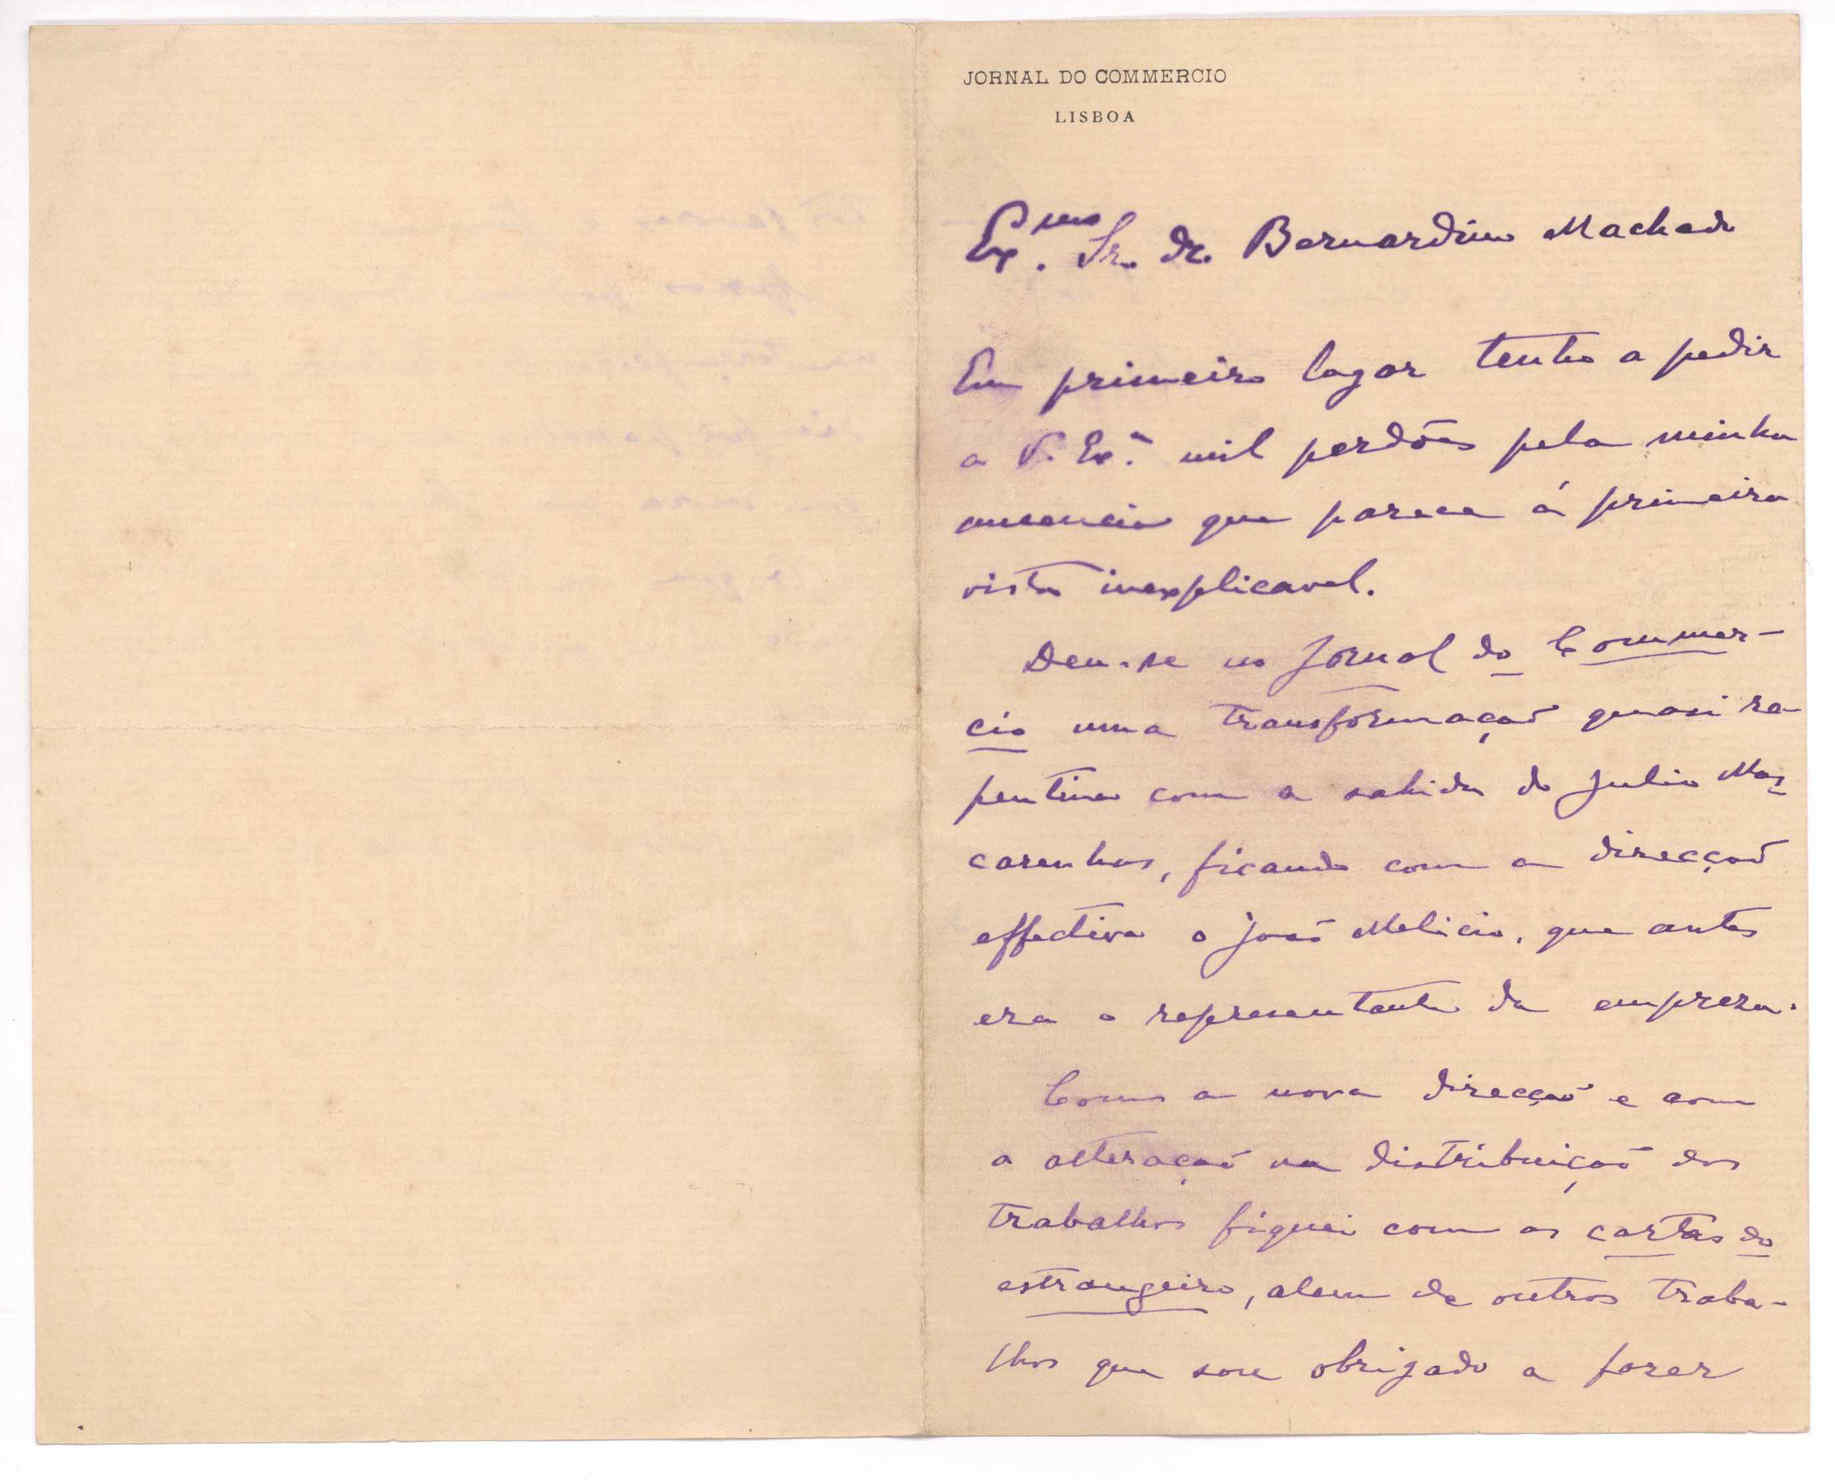 JORNAL DO COMMERCIO
LISBOA
Exmo. Sr. Dr. Bernardino Machado
Em primeiro logar tenho a pedir
a V. Exª. mil perdões pela minha
ausencia que parece á primeira
vista inexplicavel.
Deu-se no Jornal do Commer-
cio uma transformação quasi re
pentina com a sahida do Julio Mas-
carenhas, ficando com a direcção
effectiva o João Melicio, que antes
era o representante da empreza.
Com a nova direcção e com
a alteração na distribuição dos
trabalhos fiquei com as cartas do
estrangeiro, alem de outros traba-
lhos que sou obrigado a fazer